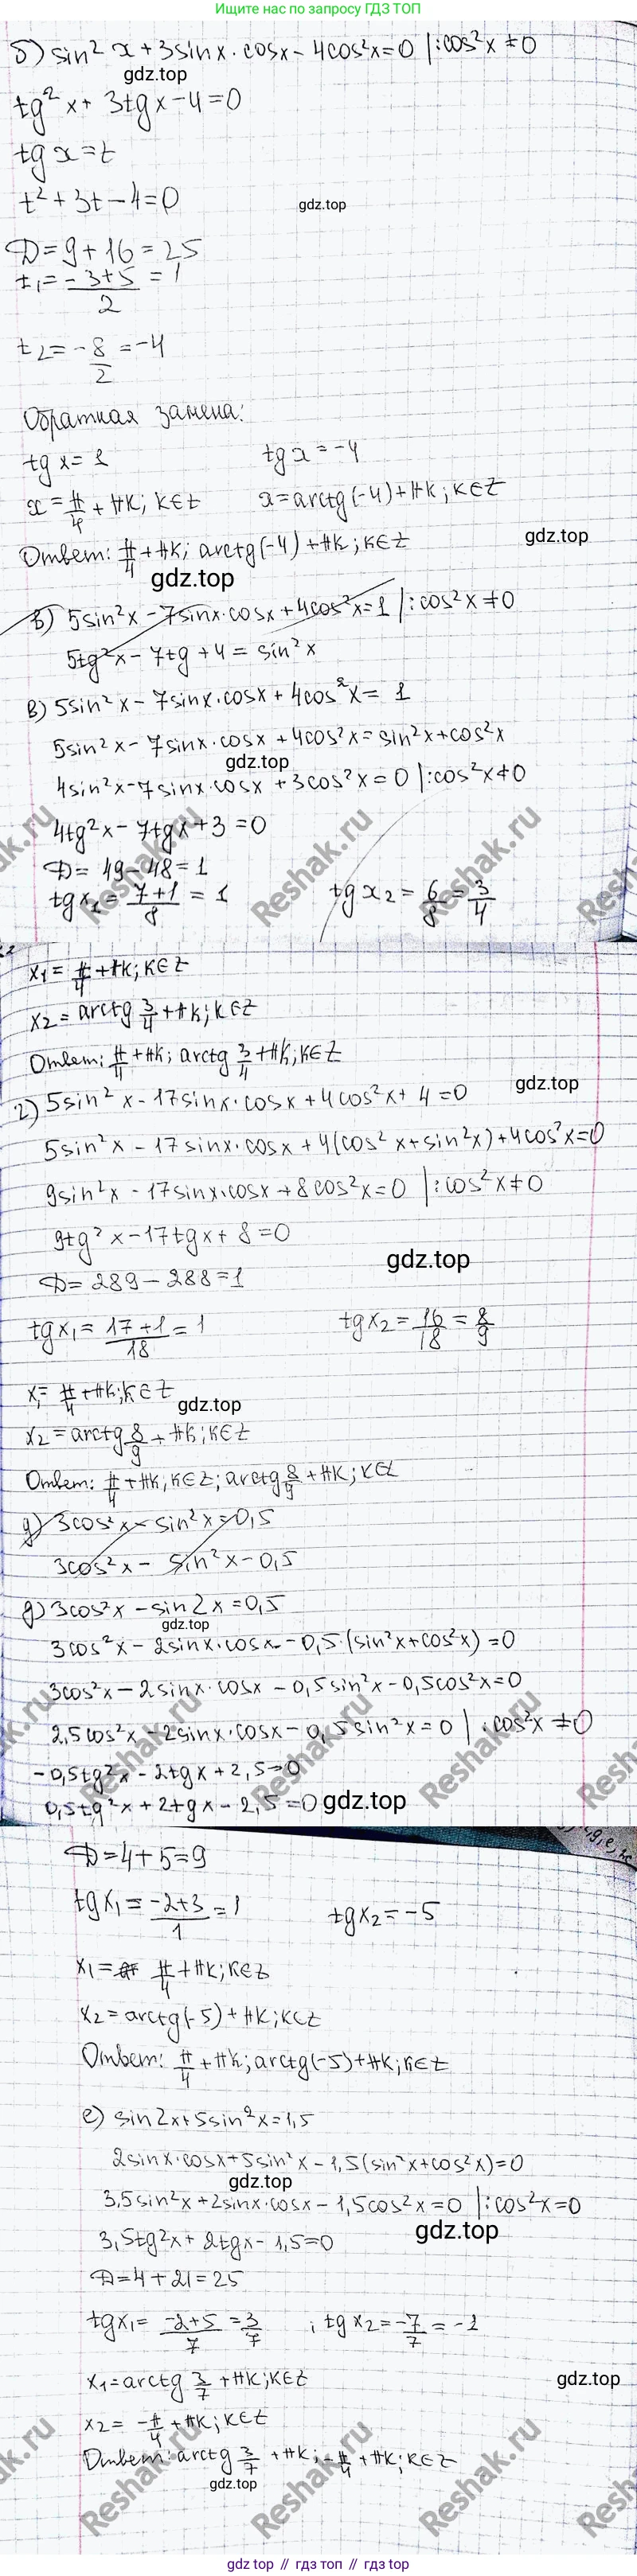 Ищете нас по запросу ГДЗ ТОП
б) sin² x + 3sinx · cosx - 4cos²x = 0 |:cos²x ≠ 0
gdz.top
tg² x + 3tgx - 4 = 0
tg x = t
t² + 3t - 4 = 0
gdz.top
D = 9 + 16 = 25
t₁ = (-3+5)/2 = 1
t₂ = -8/2 = -4
Обратная замена:
tg x = 1 tg x = -4
x = π/4 + πk; k∈Z x = arctg(-4) + πk; k∈Z
gdz.top
Ответ: π/4 + πk; arctg(-4) + πk; k∈Z
gdz.top
в) 5sin²x - 7sinx·cosx + 4cos²x = 1 |:cos²x ≠ 0
5tg²x - 7tg + 4 = sin²x
в) 5sin²x - 7sinx·cosx + 4cos²x = 1
5sin²x - 7sinx·cosx + 4cos²x = sin²x + cos²x
gdz.top
4sin²x - 7sinx·cosx + 3cos²x = 0 |:cos²x ≠ 0
4tg²x - 7tgx + 3 = 0
D = 49 - 48 = 1
tgx₁ = (7+1)/8 = 1 tgx₂ = 6/8 = 3/4
Reshak.ru Reshak.ru Reshak.ru
x₁ = π/4 + πk; k∈Z
x₂ = arctg 3/4 + πk; k∈Z
Ответ: π/4 + πk; arctg 3/4 + πk; k∈Z
gdz.top
г) 5sin² x - 17sinx·cosx + 4cos²x + 4 = 0
5sin²x - 17sinx·cosx + 4(cos²x + sin²x) + 4cos²x = 0
9sin²x - 17sinx·cosx + 8cos²x = 0 |:cos²x ≠ 0
9tg²x - 17tgx + 8 = 0
gdz.top
D = 289 - 288 = 1
tgx₁ = (17+1)/18 = 1 tgx₂ = 16/18 = 8/9
x₁ = π/4 + πk; k∈Z
gdz.top
x₂ = arctg 8/9 + πk; k∈Z
Ответ: π/4 + πk, k∈Z; arctg 8/9 + πk; k∈Z
д) 3cos²x - sin²x = 0,5
3cos²x - sin²x - 0,5
д) 3cos²x - sin2x = 0,5
gdz.top
3cos²x - 2sinx·cosx - 0,5·(sin²x + cos²x) = 0
3cos²x - 2sinx·cosx - 0,5sin²x - 0,5cos²x = 0
2,5cos²x - 2sinx·cosx - 0,5sin²x = 0 |:cos²x ≠ 0
Reshak.ru Reshak.ru Reshak.ru
-0,5tg²x - 2tgx + 2,5 = 0
0,5tg²x + 2tgx - 2,5 = 0
gdz.top
D = 4 + 5 = 9
tgx₁ = (-2+3)/1 = 1 tgx₂ = -5
x₁ = π/4 + πk; k∈Z
x₂ = arctg(-5) + πk; k∈Z
Ответ: π/4 + πk; arctg(-5) + πk; k∈Z
е) sin2x + 5sin²x = 1,5
2sinx·cosx + 5sin²x - 1,5(sin²x + cos²x) = 0
gdz.top
3,5sin²x + 2sinx·cosx - 1,5cos²x = 0 |:cos²x = 0
gdz.top
3,5tg²x + 2tgx - 1,5 = 0
D = 4 + 21 = 25
tgx₁ = (-2+5)/7 = 3/7 ; tgx₂ = -7/7 = -1
x₁ = arctg 3/7 + πk; k∈Z
gdz.top
x₂ = -π/4 + πk; k∈Z
Ответ: arctg 3/7 + πk; -π/4 + πk; k∈Z
gdz.top
Reshak.ru Reshak.ru Reshak.ru
gdz.top // gdz.top // gdz.top